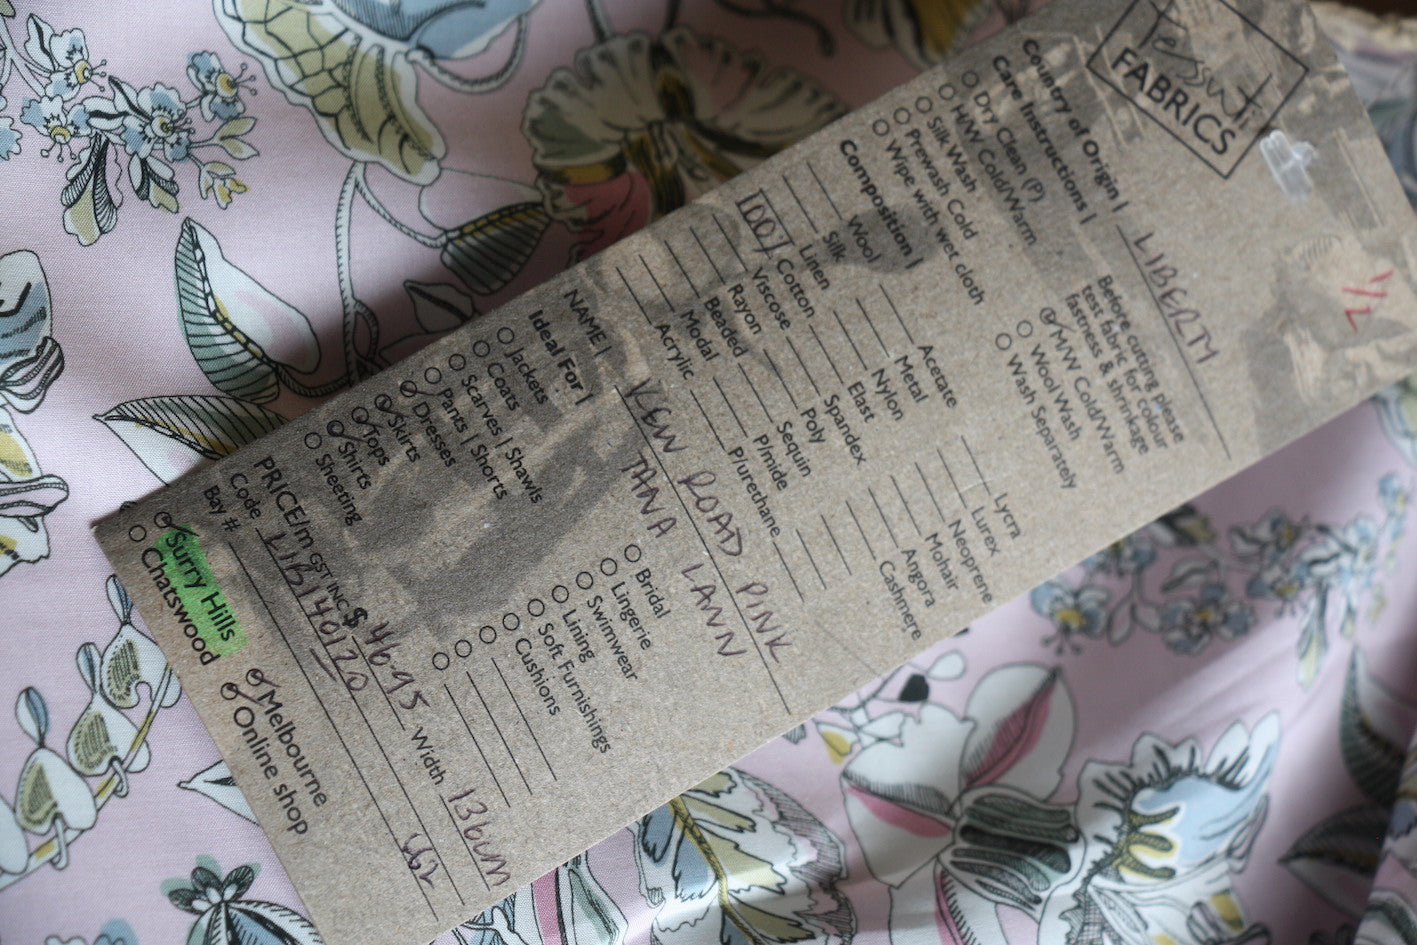 Tessuti
FABRICS
1/2
Country of Origin | LIBERTY
Care Instructions |
Dry Clean (P)
H/W Cold/Warm
Silk Wash
Prewash Cold
Wipe with wet cloth
Before cutting please
test fabric for colour
fastness & shrinkage
M/W Cold/Warm
Wool Wash
Wash Separately
Composition |
Wool
Silk
Linen
100% Cotton
Viscose
Rayon
Beaded
Modal
Acrylic
Acetate
Metal
Nylon
Elast
Spandex
Poly
Sequin
P/mide
P/urethane
Lycra
Lurex
Neoprene
Mohair
Angora
Cashmere
NAME | KEW ROAD PINK
TANA LAWN
Ideal For |
Jackets
Coats
Scarves | Shawls
Pants | Shorts
Dresses
Skirts
Tops
Shirts
Sheeting
Bridal
Lingerie
Swimwear
Lining
Soft Furnishings
Cushions
PRICE/m GST INC $ 46.95 Width 136cm
Code LIB140120
Bay #
Surry Hills
Chatswood
Melbourne
Online shop